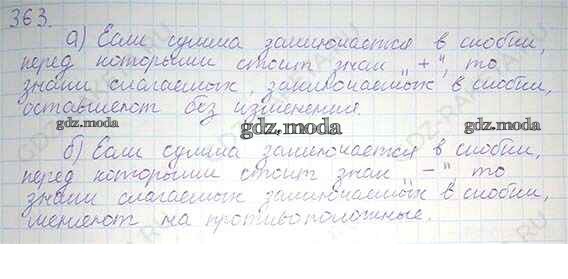 363.
а) Если сумма заключается в скобки,
перед которыми стоит знак „+“, то
знаки слагаемых, заключаемых в скобки,
оставляют без изменения.
gdz.moda gdz.moda gdz.moda
б) Если сумма заключается в скобки,
перед которыми стоит знак „–“, то
знаки слагаемых заключаемых в скобки,
меняют на противоположные.